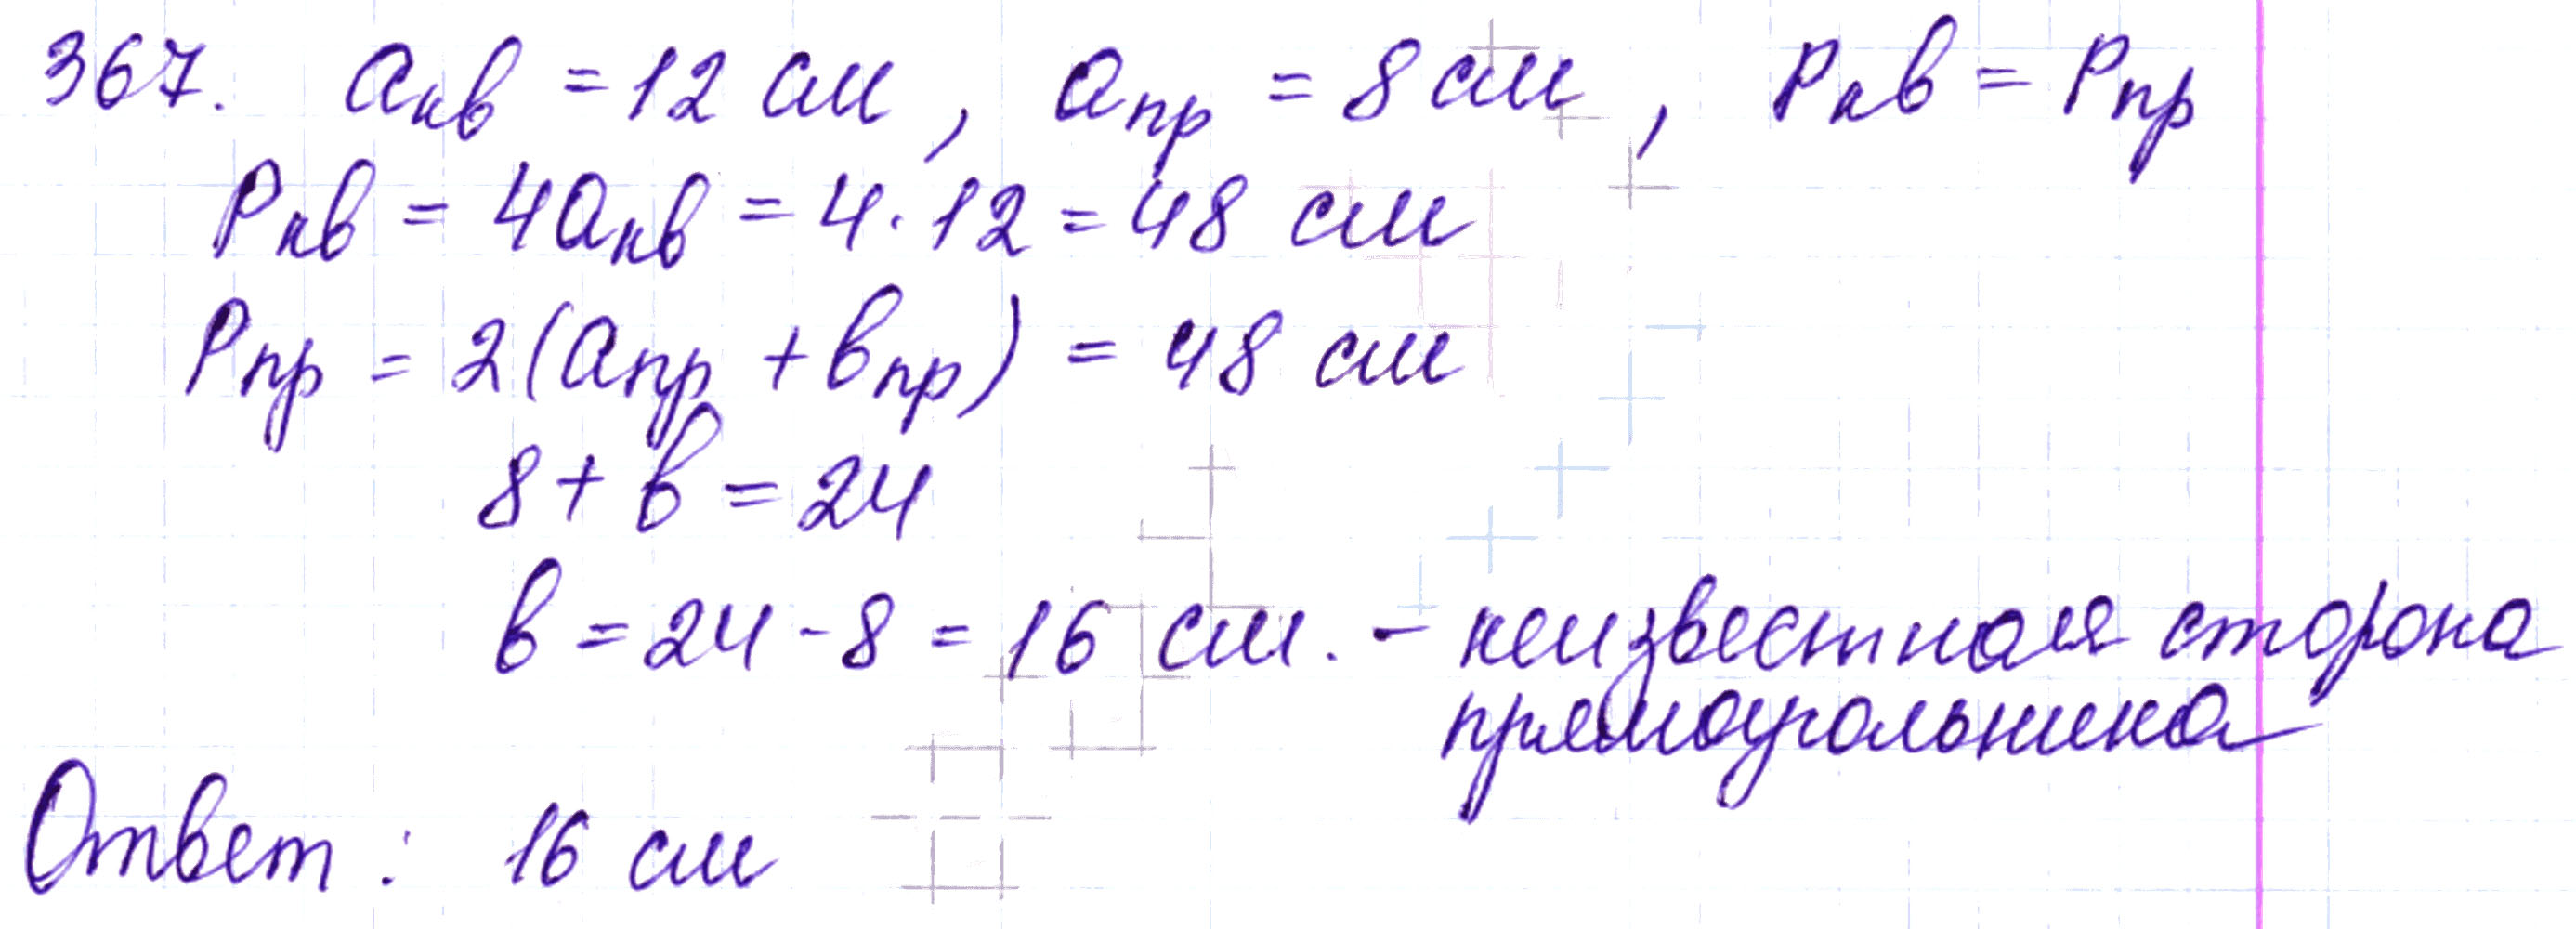 367. aкв = 12 см, aпр = 8 см, Pкв = Pпр
Pкв = 4aкв = 4 · 12 = 48 см
Pпр = 2(aпр + bпр) = 48 см
8 + b = 24
b = 24 - 8 = 16 см. - неизвестная сторона
прямоугольника
Ответ: 16 см